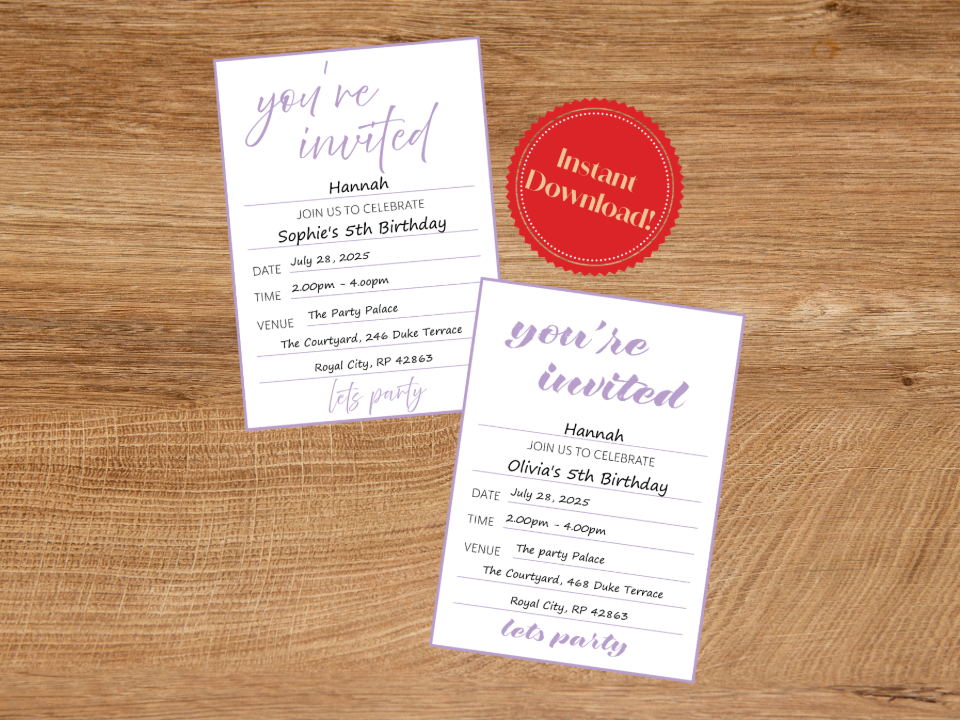 you're
invited
Hannah
JOIN US TO CELEBRATE
Sophie's 5th Birthday
DATE July 28, 2025
TIME 2.00pm - 4.oopm
VENUE The Party Palace
The Courtyard, 246 Duke Terrace
Royal City, RP 42863
lets party
Instant
Download!
you're
invited
Hannah
JOIN US TO CELEBRATE
Olivia's 5th Birthday
DATE July 28, 2025
TIME 2.00pm - 4.00pm
VENUE The party Palace
The Courtyard, 468 Duke Terrace
Royal City, RP 42863
lets party